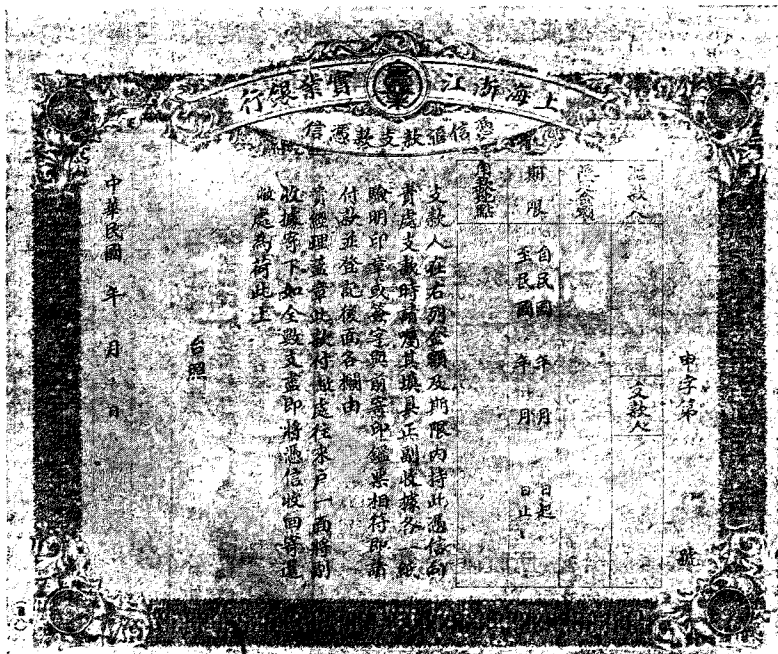 上海浙江實業銀行
憑信匯款支款憑信
申字第　　號
匯款人　　支款人
匯金額
期限　自民國　年　月　日起
至民國　年　月　日止
支款人在右列金額及期限內持此憑信到
貴處支款時請囑其填具正副收據各一紙
驗明印章或簽字與前寄印鑑票相符即請
付款並登記後面各欄由
貴經理蓋章此款付敝處往來戶一面將副
收據寄下如全數支盡即將憑信收回寄還
敝處為荷此上
台照
中華民國　年　月　日